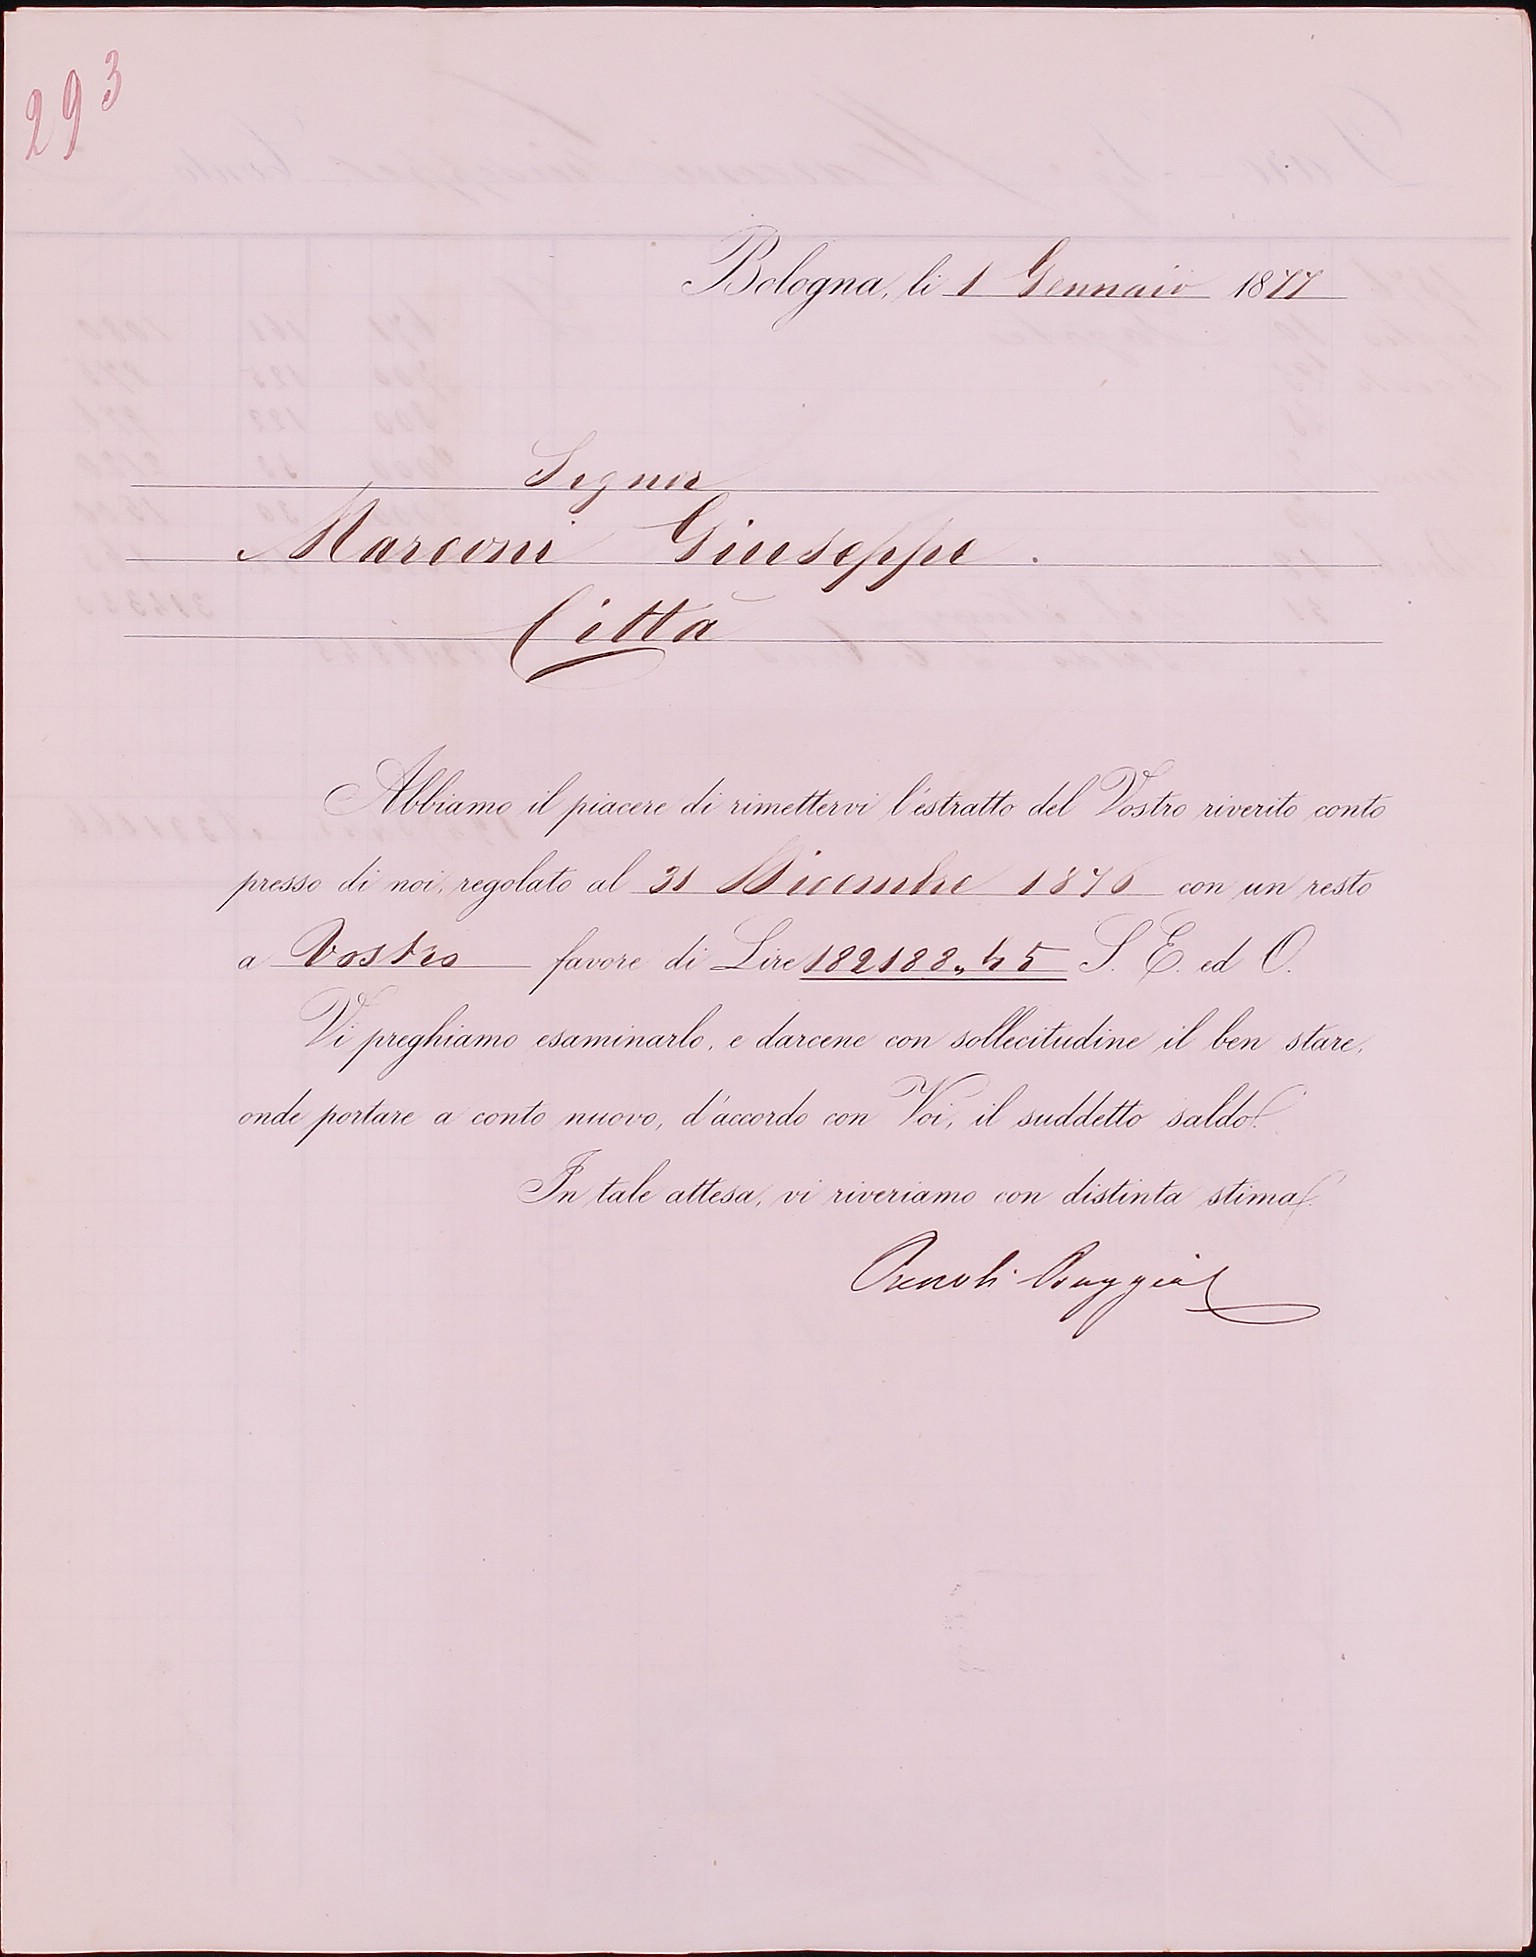 293
Bologna, li 1 Gennaio 1877
Signor
Marconi Giuseppe.
Città
Abbiamo il piacere di rimettervi l'estratto del Vostro riverito conto
presso di noi, regolato al 31 Dicembre 1876 con un resto
a Vostro favore di Lire 182188,45 S. E. ed O.
Vi preghiamo esaminarlo, e darcene con sollecitudine il ben stare,
onde portare a conto nuovo, d'accordo con Voi, il suddetto saldo.
In tale attesa, vi riveriamo con distinta stima.